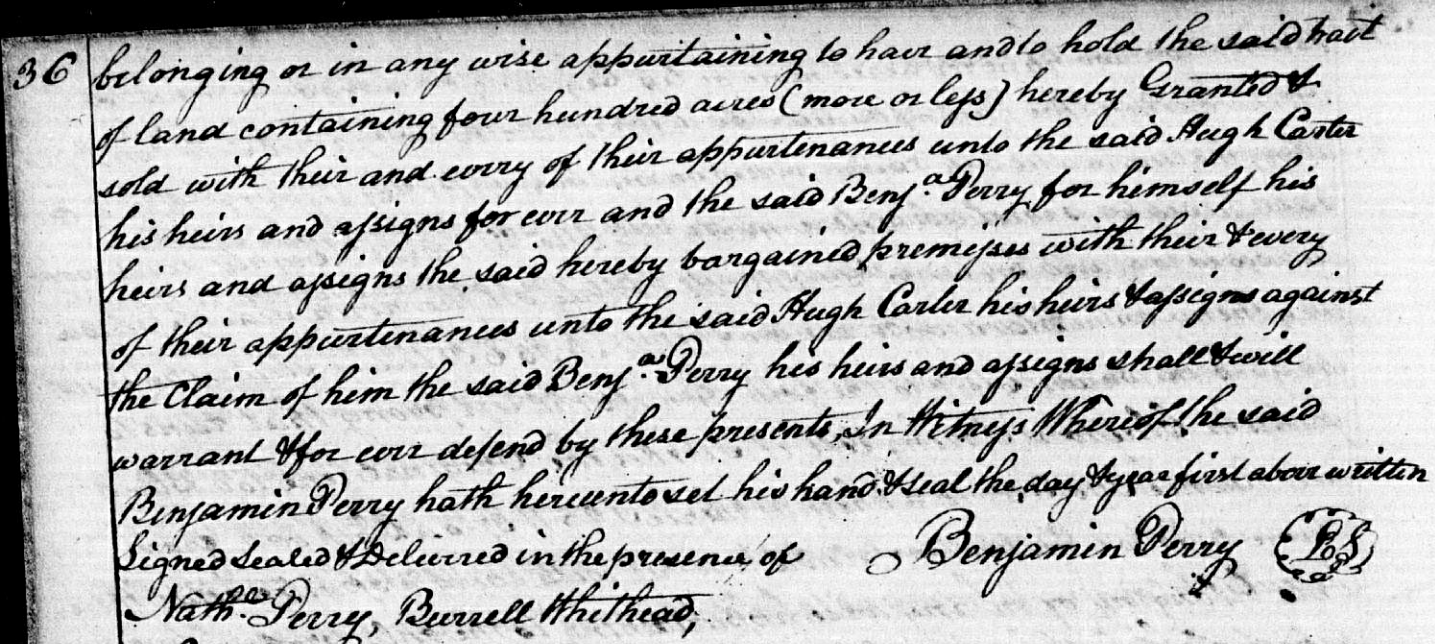 36
belonging or in any wise appurtaining to have and to hold the said tract
of land containing four hundred acres (more or less) hereby Granted &
sold with their and every of their appurtenances unto the said Hugh Carter
his heirs and assigns for ever and the said Benja. Perry for himself his
heirs and assigns the said hereby bargained premisses with their & every
of their appurtenances unto the said Hugh Carter his heirs & assigns against
the Claim of him the said Benja. Perry his heirs and assigns shall & will
warrant & for ever defend by these presents, In Witness Whereof the said
Benjamin Perry hath hereunto set his hand & seal the day & year first above written
Signed Sealed & Delivered in the presence of Benjamin Perry LS
Nathn. Perry, Burrell Whithead,